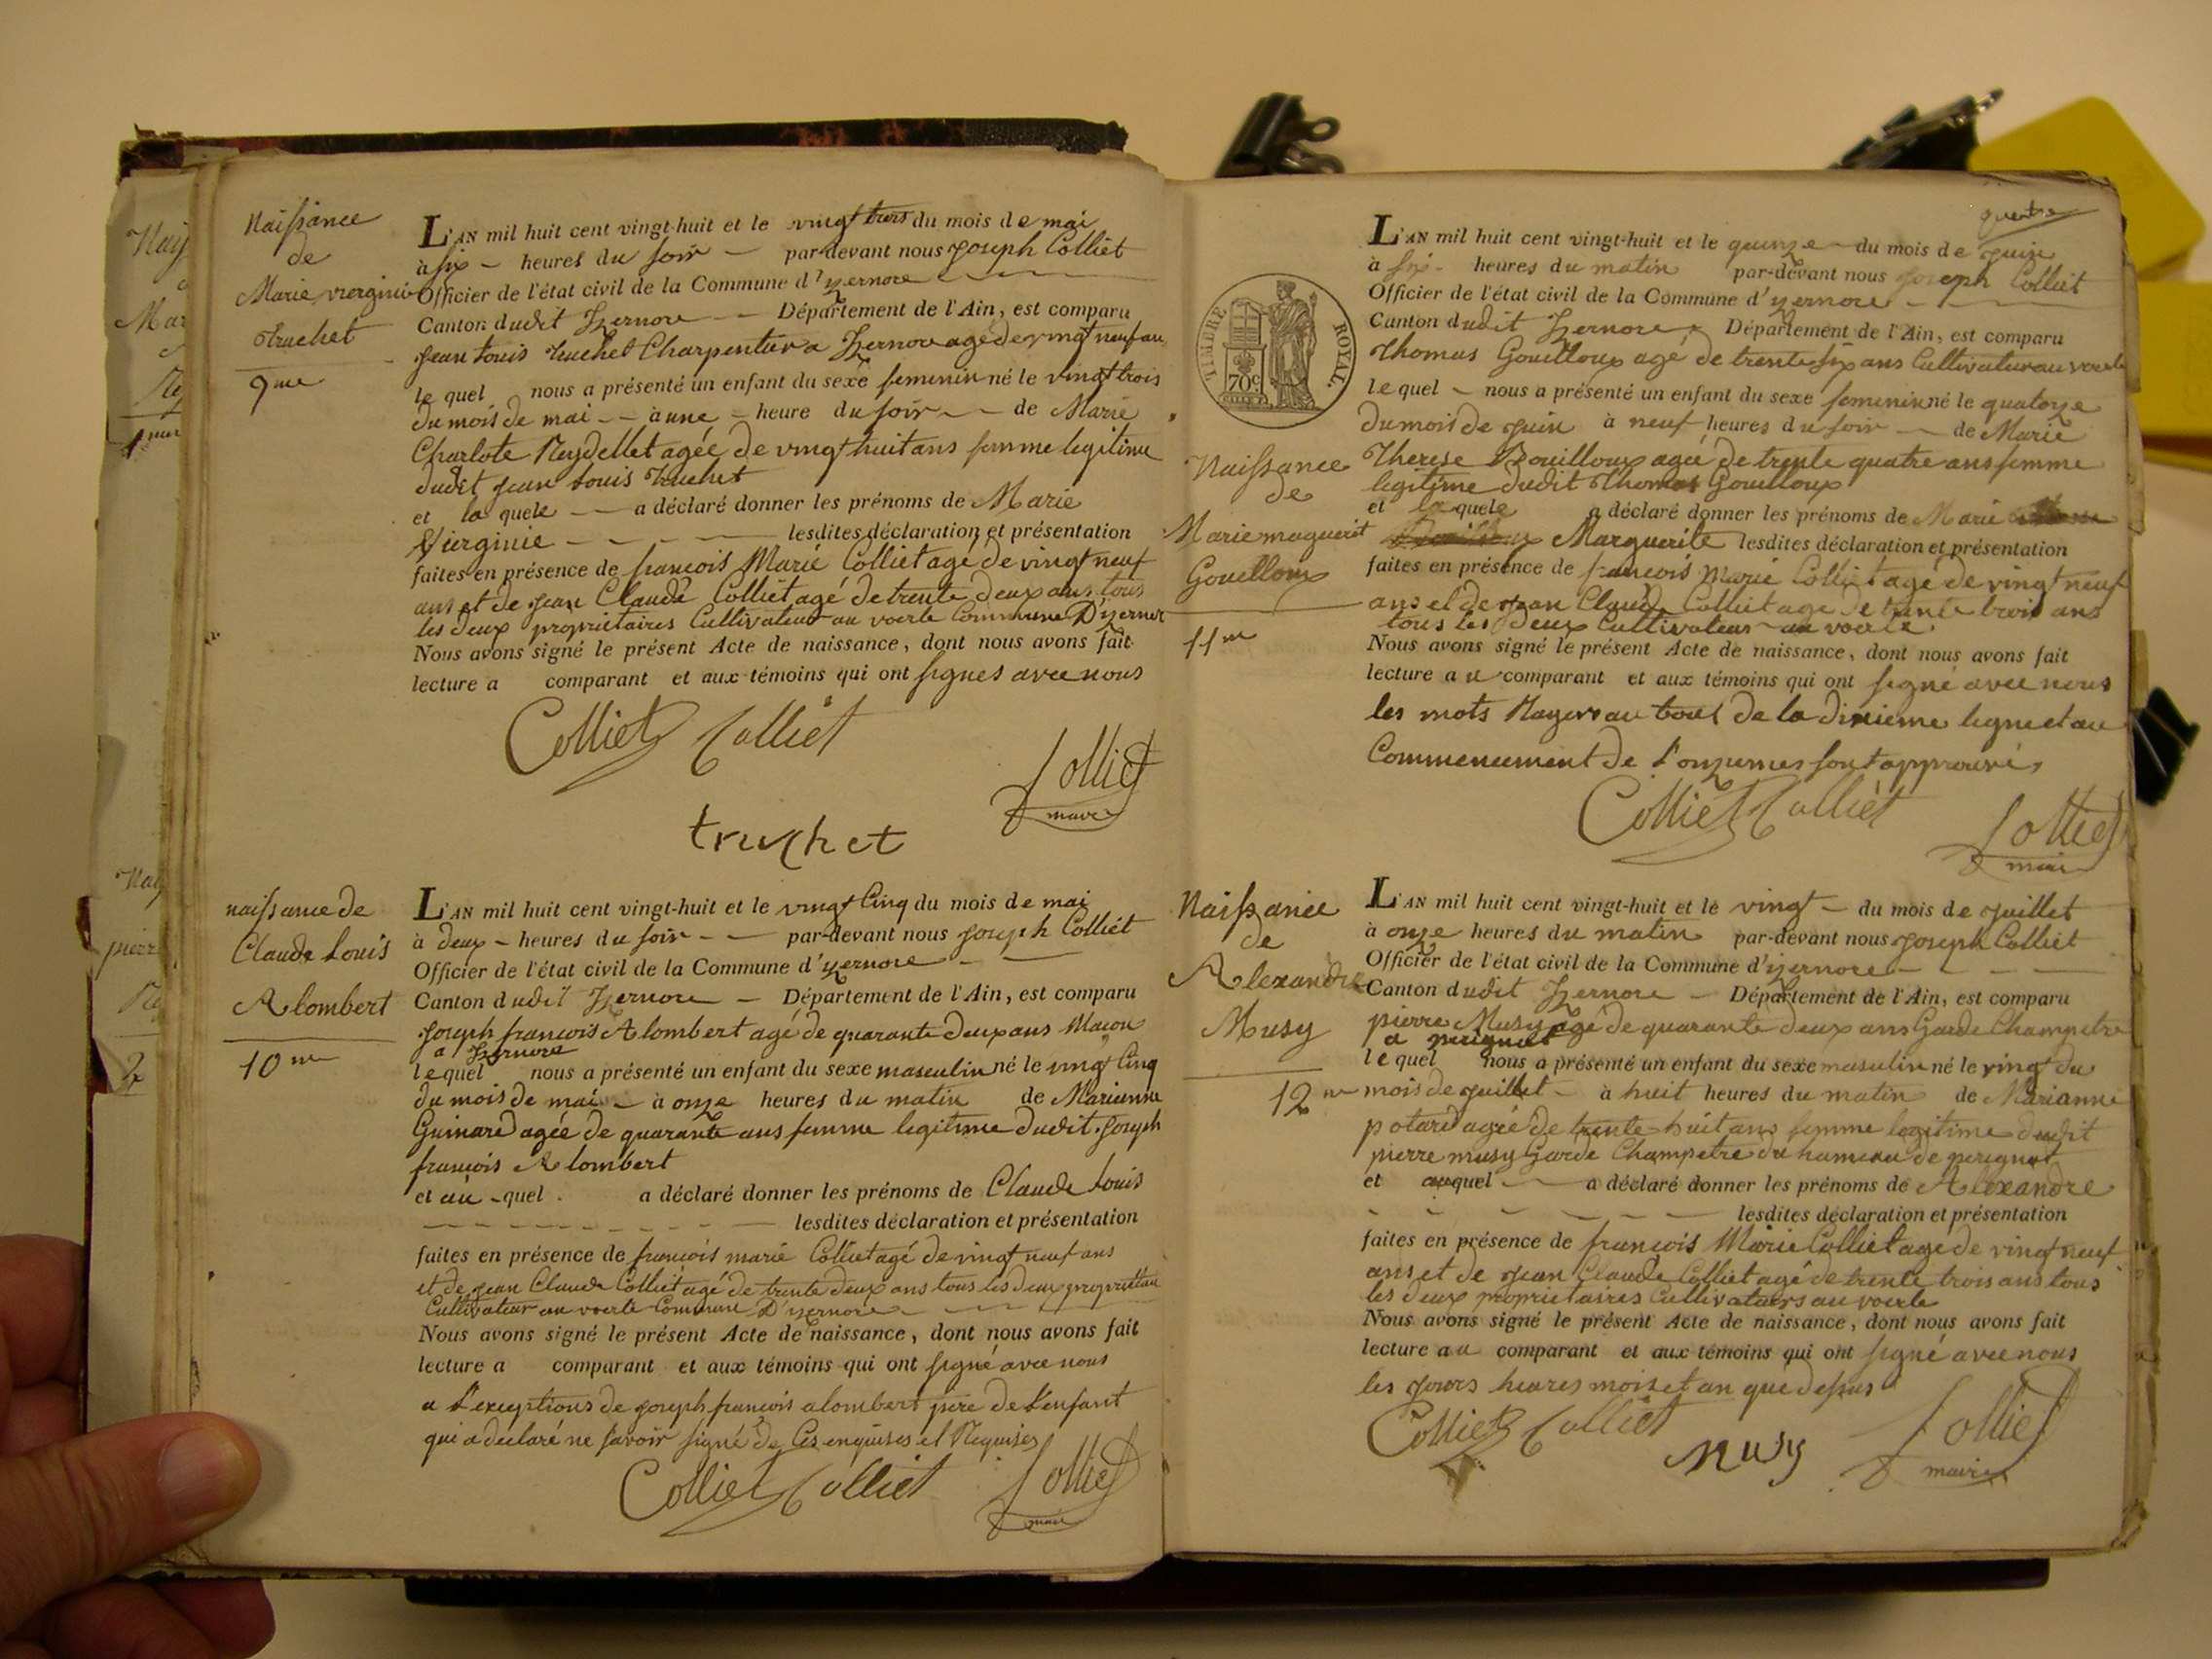 Naissance
de
Marie virginie
Truchet
9me
L'AN mil huit cent vingt-huit et le vingt trois du mois de mai
à six – heures du soir – par-devant nous Joseph Colliet
Officier de l'état civil de la Commune d'yzernore
Canton dudit Izernore – Département de l'Ain, est comparu
Jean Louis Truchet Charpentier a Izernore agé de vingt neuf an
lequel nous a présenté un enfant du sexe feminin né le vingt trois
du mois de mai – à une – heure du soir – de Marie
Charlote Reydellet agée de vingt huit ans femme legitime
dudit Jean Louis Truchet
et la quele – a déclaré donner les prénoms de Marie
Virginie – lesdites déclaration et présentation
faites en présence de francois Marie Colliet agé de vingt neuf
ans et de Jean Claude Colliet agé de trente deux ans tous
les deux propriétaires Cultivateur au voerle Commune D'yzernor
Nous avons signé le présent Acte de naissance, dont nous avons fait
lecture a comparant et aux témoins qui ont signes avec nous
Colliet Colliet
Colliet
maire
truchet
naissance de
Claude Louis
Alombert
10me
L'AN mil huit cent vingt-huit et le vingt Cinq du mois de mai
à deux – heures du soir – par-devant nous Joseph Colliet
Officier de l'état civil de la Commune d'yzernore
Canton dudit Izernore – Département de l'Ain, est comparu
Joseph francois Alombert agé de quarante deux ans Macon
a Izernore
lequel nous a présenté un enfant du sexe masculin né le vingt Cinq
du mois de mai – à onze heures du matin de Marianne
Guinard agée de quarante ans femme legitime dudit Joseph
francois Alombert
et au quel a déclaré donner les prénoms de Claude Louis
lesdites déclaration et présentation
faites en présence de francois marie Colliet agé de vingt neuf ans
et de Jean Claude Colliet agé de trente deux ans tous les deux propriétaire
Cultivateur au voerle Commune D'yzernore
Nous avons signé le présent Acte de naissance, dont nous avons fait
lecture a comparant et aux témoins qui ont signé avec nous
a l'exceptions de Joseph francois alombert pere de l'enfant
qui a declaré ne savoir signé de Ces enquises et Requises
Colliet Colliet Colliet
maire
quatre
TIMBRE ROYAL.
70c
Naissance
de
Marie magueret
Gouilloux
11me
L'AN mil huit cent vingt-huit et le quinze du mois de Juin
à six heures du matin par-devant nous Joseph Colliet
Officier de l'état civil de la Commune d'yzernore
Canton dudit Izernore Département de l'Ain, est comparu
Thomas Gouilloux agé de trente six ans Cultivateur au voerle
lequel – nous a présenté un enfant du sexe feminin né le quatoze
du mois de Juin à neuf heures du soir – de Marie
Therese Bouilloux agée de trente quatre ans femme
legitime dudit Thomas Gouilloux
et la quele a déclaré donner les prénoms de Marie
Marguerite lesdites déclaration et présentation
faites en présence de francois Marie Colliet agé de vingt neuf
ans et de Jean Claude Colliet agé de trente trois ans
tous les deux Cultivateur au voerle
Nous avons signé le présent Acte de naissance, dont nous avons fait
lecture au comparant et aux témoins qui ont signé avec nous
les mots Rayers au bout de la dixieme ligne et au
Commencement de l'onziemes sont approuvés
Colliet Colliet
Colliet
maire
Naissance
de
Alexandre
Musy
12me
L'AN mil huit cent vingt-huit et le vingt – du mois de Juillet
à onze heures du matin par-devant nous Joseph Colliet
Officier de l'état civil de la Commune d'izernore
Canton dudit Izernore – Département de l'Ain, est comparu
pierre Musy agé de quarante deux ans Garde Champetre
a perignat
lequel nous a présenté un enfant du sexe masulin né le vingt du
mois de Juillet – à huit heures du matin de Marianne
potard agée de trente huit ans femme legitime dudit
pierre musy Garde Champetre du hameau de perignat
et auquel – a déclaré donner les prénoms de Alexandre
lesdites déclaration et présentation
faites en présence de francois Marie Colliet agé de vingt neuf
ans et de Jean Claude Colliet agé de trente trois ans tous
les deux proprietaires Cultivateurs au voerle
Nous avons signé le présent Acte de naissance, dont nous avons fait
lecture au comparant et aux témoins qui ont signé avec nous
les Jours heures mois et an que dessus
Colliet Colliet
Musy
Colliet
maire